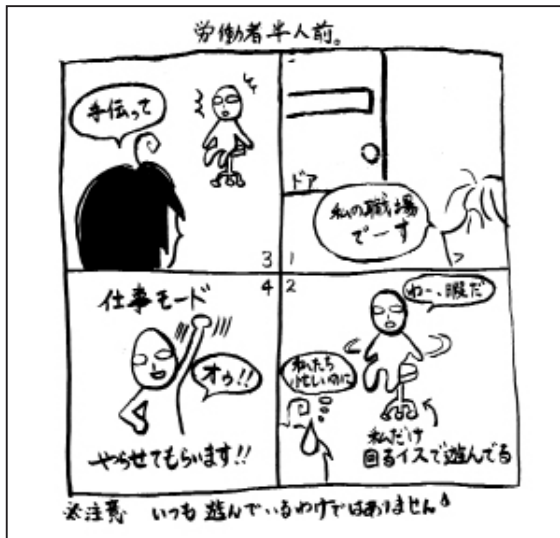 労働者半人前。
1
ドア
私の職場
でーす
2
ねー、暇だ
私たち
忙しいのに
私だけ
回るイスで遊んでる
3
手伝って
4
仕事モード
オゥ!!
やらせてもらいます!!
※注意 いつも遊んでいるわけではありません